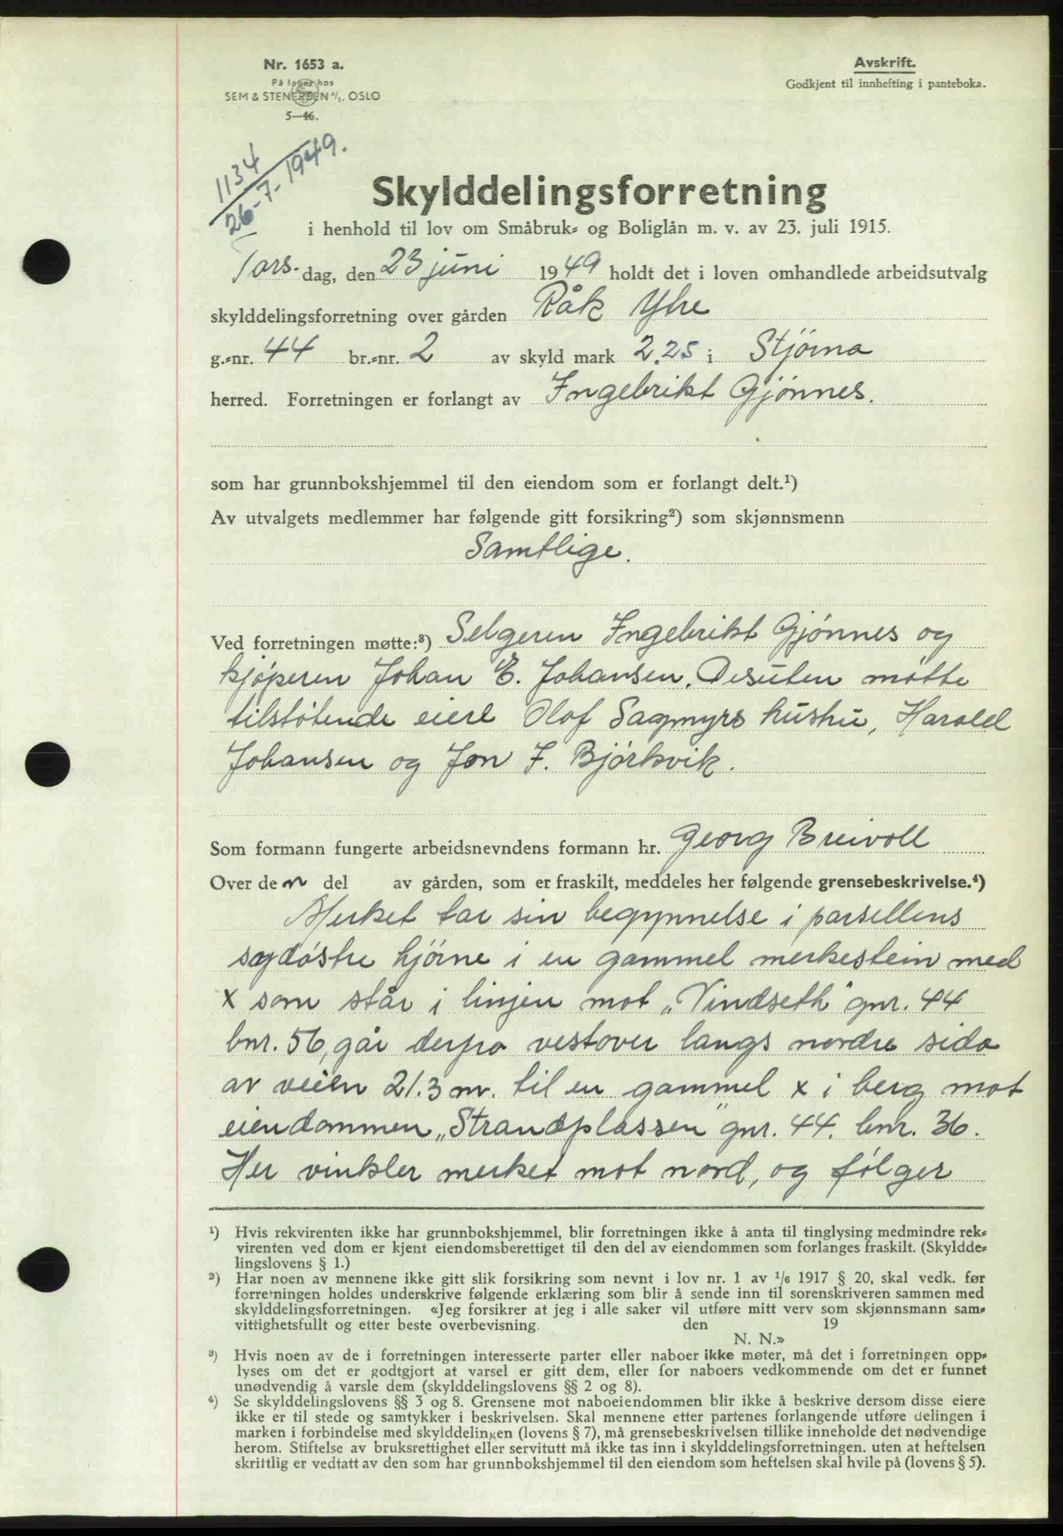 Nr. 1653 a.
På lager hos
SEM & STENERSEN A/S. OSLO
5—46.
Avskrift.
Godkjent til innhefting i panteboka.
1134
26-7-1949.
Skylddelingsforretning
i henhold til lov om Småbruk- og Boliglån m. v. av 23. juli 1915.
Tors-dag, den 23 juni 1949 holdt det i loven omhandlede arbeidsutvalg
skylddelingsforretning over gården Råk Ytre
g.-nr. 44 br.-nr. 2 av skyld mark 2.25 i Stjørna
herred. Forretningen er forlangt av Ingebrikt Gjønnes.
som har grunnbokshjemmel til den eiendom som er forlangt delt.¹)
Av utvalgets medlemmer har følgende gitt forsikring²) som skjønnsmenn
Samtlige.
Ved forretningen møtte:³) Selgeren Ingebrikt Gjønnes og
kjøperen Johan E. Johansen. Desuten møtte
tilstøtende eiere Olaf Sagmyrs hustru, Harald
Johansen og Jon F. Bjørkvik.
Som formann fungerte arbeidsnevndens formann hr. Georg Breivoll
Over den del av gården, som er fraskilt, meddeles her følgende grensebeskrivelse.⁴)
Merket tar sin begynnelse i parsellens
sydøstre hjørne i en gammel merkestein med
x som står i linjen mot „Vindseth" gnr. 44
bnr. 56, går derfra vestover langs nordre side
av veien 21.3 m. til en gammel x i berg mot
eiendommen „Strandplassen" gnr. 44. bnr. 36.
Her vinkler merket mot nord, og følger
¹) Hvis rekvirenten ikke har grunnbokshjemmel, blir forretningen ikke å anta til tinglysing medmindre rek-
virenten ved dom er kjent eiendomsberettiget til den del av eiendommen som forlanges fraskilt. (Skyldde-
lingslovens § 1.)
²) Har noen av mennene ikke gitt slik forsikring som nevnt i lov nr. 1 av 1/6 1917 § 20, skal vedk. før
forretningen holdes underskrive følgende erklæring som blir å sende inn til sorenskriveren sammen med
skylddelingsforretningen. «Jeg forsikrer at jeg i alle saker vil utføre mitt verv som skjønnsmann sam-
vittighetsfullt og etter beste overbevisning. den 19
N. N.»
³) Hvis noen av de i forretningen interesserte parter eller naboer ikke møter, må det i forretningen opp-
lyses om det er godtgjort at varsel er gitt dem, eller for naboers vedkommende om det er funnet
unødvendig å varsle dem (skylddelingslovens §§ 2 og 8).
⁴) Se skylddelingslovens §§ 3 og 8. Grensene mot naboeiendommen blir ikke å beskrive dersom disse eiere
ikke er til stede og samtykker i beskrivelsen. Skal mennene etter partenes forlangende utføre delingen i
marken i forbindelse med skylddelingen (lovens § 7), må grensebeskrivelsen tillike inneholde det nødvendige
herom. Stiftelse av bruksrettighet eller servitutt må ikke tas inn i skylddelingsforretningen. uten at heftelsen
skriftlig er vedtatt av den som har grunnbokshjemmel til den eiendom som heftelsen skal hvile på (lovens § 5).